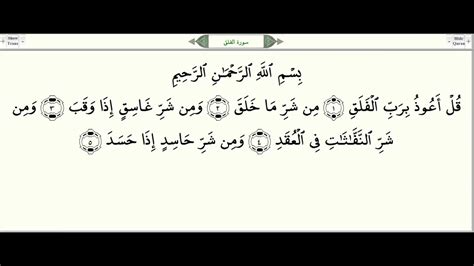 Show Trans
سورة الفلق
Hide Quran
بِسْمِ ٱللَّهِ ٱلرَّحْمَـٰنِ ٱلرَّحِيمِ
قُلْ أَعُوذُ بِرَبِّ ٱلْفَلَقِ ۝١ مِن شَرِّ مَا خَلَقَ ۝٢ وَمِن شَرِّ غَاسِقٍ إِذَا وَقَبَ ۝٣ وَمِن
شَرِّ ٱلنَّفَّـٰثَـٰتِ فِى ٱلْعُقَدِ ۝٤ وَمِن شَرِّ حَاسِدٍ إِذَا حَسَدَ ۝٥